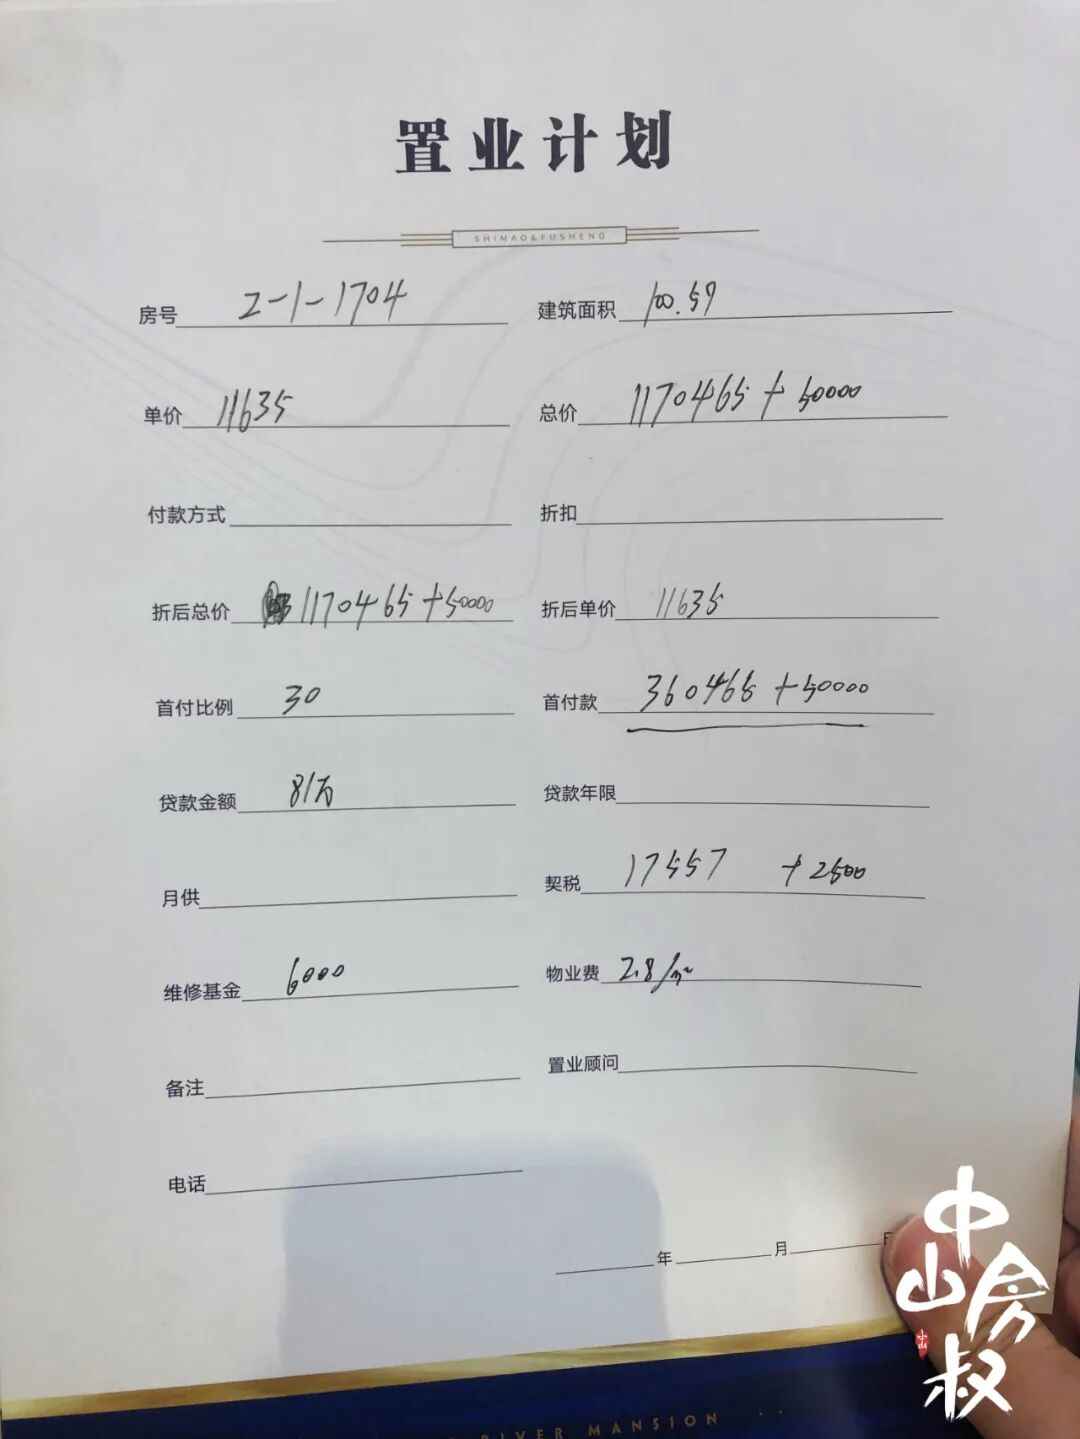 置业计划
SHIMAO&FUSHENG
房号 2-1-1704 建筑面积 100.59
单价 11635 总价 1170465+50000
付款方式 折扣
折后总价 1170465+50000 折后单价 11635
首付比例 30 首付款 360465+50000
贷款金额 81万 贷款年限
月供 契税 17557 +2500
维修基金 6000 物业费 2.8/m²
备注 置业顾问
电话
年 月 日
RIVER MANSION
中山房叔
中山